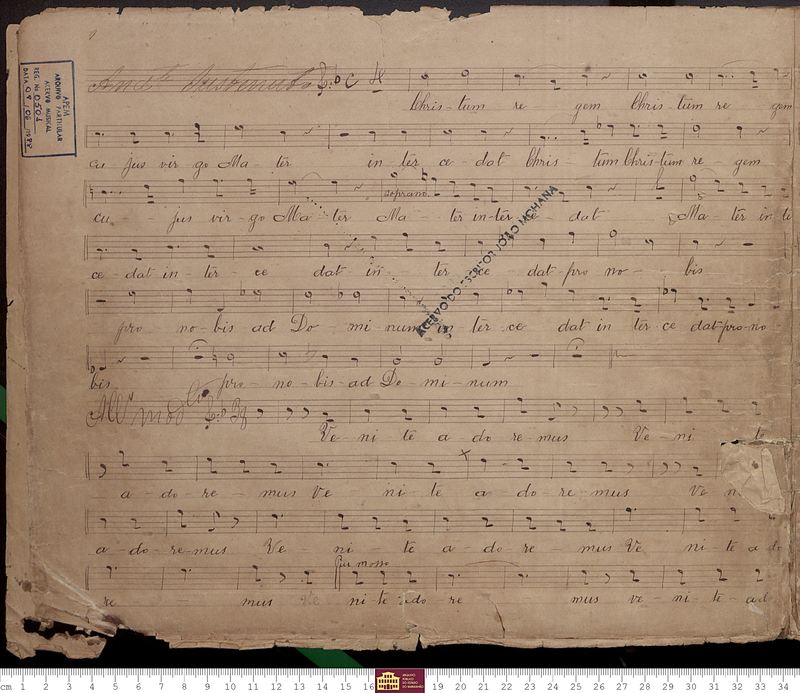 APEM
ARQUIVO PARTICULAR
ACERVO MUSICAL
REG. No 0504
DATA 09/06/1987
Andte Sustinuto C
Chris-tum re - gem Chris-tum re gem
cu jus vir-go Ma-ter in-ter ce-dat Chris-tum Chris-tum re-gem
soprano
cu - jus vir-go Ma-ter Ma-ter in-ter-ce-dat Ma-ter in te
ce-dat in-ter-ce dat in ter ce dat pro no - bis
pro no-bis ad Do-mi-num in-ter-ce dat in ter ce dat-pro-no
bis pro-no-bis-ad Do-mi-num
Allo modto
Ve-ni-te a-do-re-mus Ve-ni te
a-do-re-mus Ve-ni-te a-do-re-mus Ve
a-do-re-mus Ve-ni-te a-do-re-mus Ve ni-te a do
Piu mosso
re mus Ve ni-te ado-re mus ve-ni-te-ad
ACERVO DO ESCRITOR JOÃO MOHANA
cm 1 2 3 4 5 6 7 8 9 10 11 12 13 14 15 16 19 20 21 22 23 24 25 26 27 28 29 30 31 32 33 34